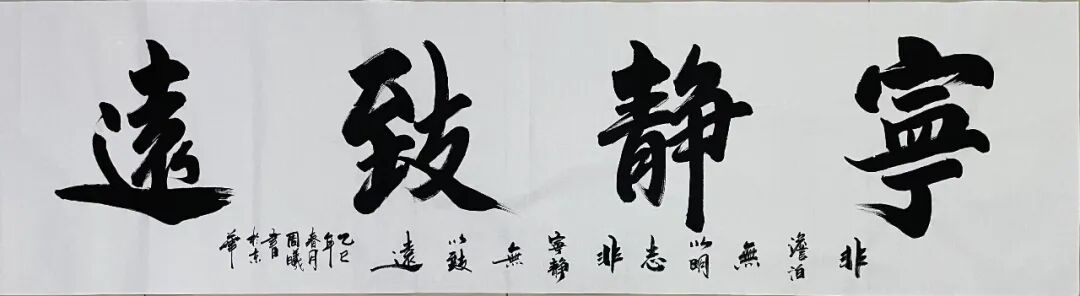 寧靜致遠
非澹泊無以明志非寧靜無以致遠
乙巳年春月周曦書於京華